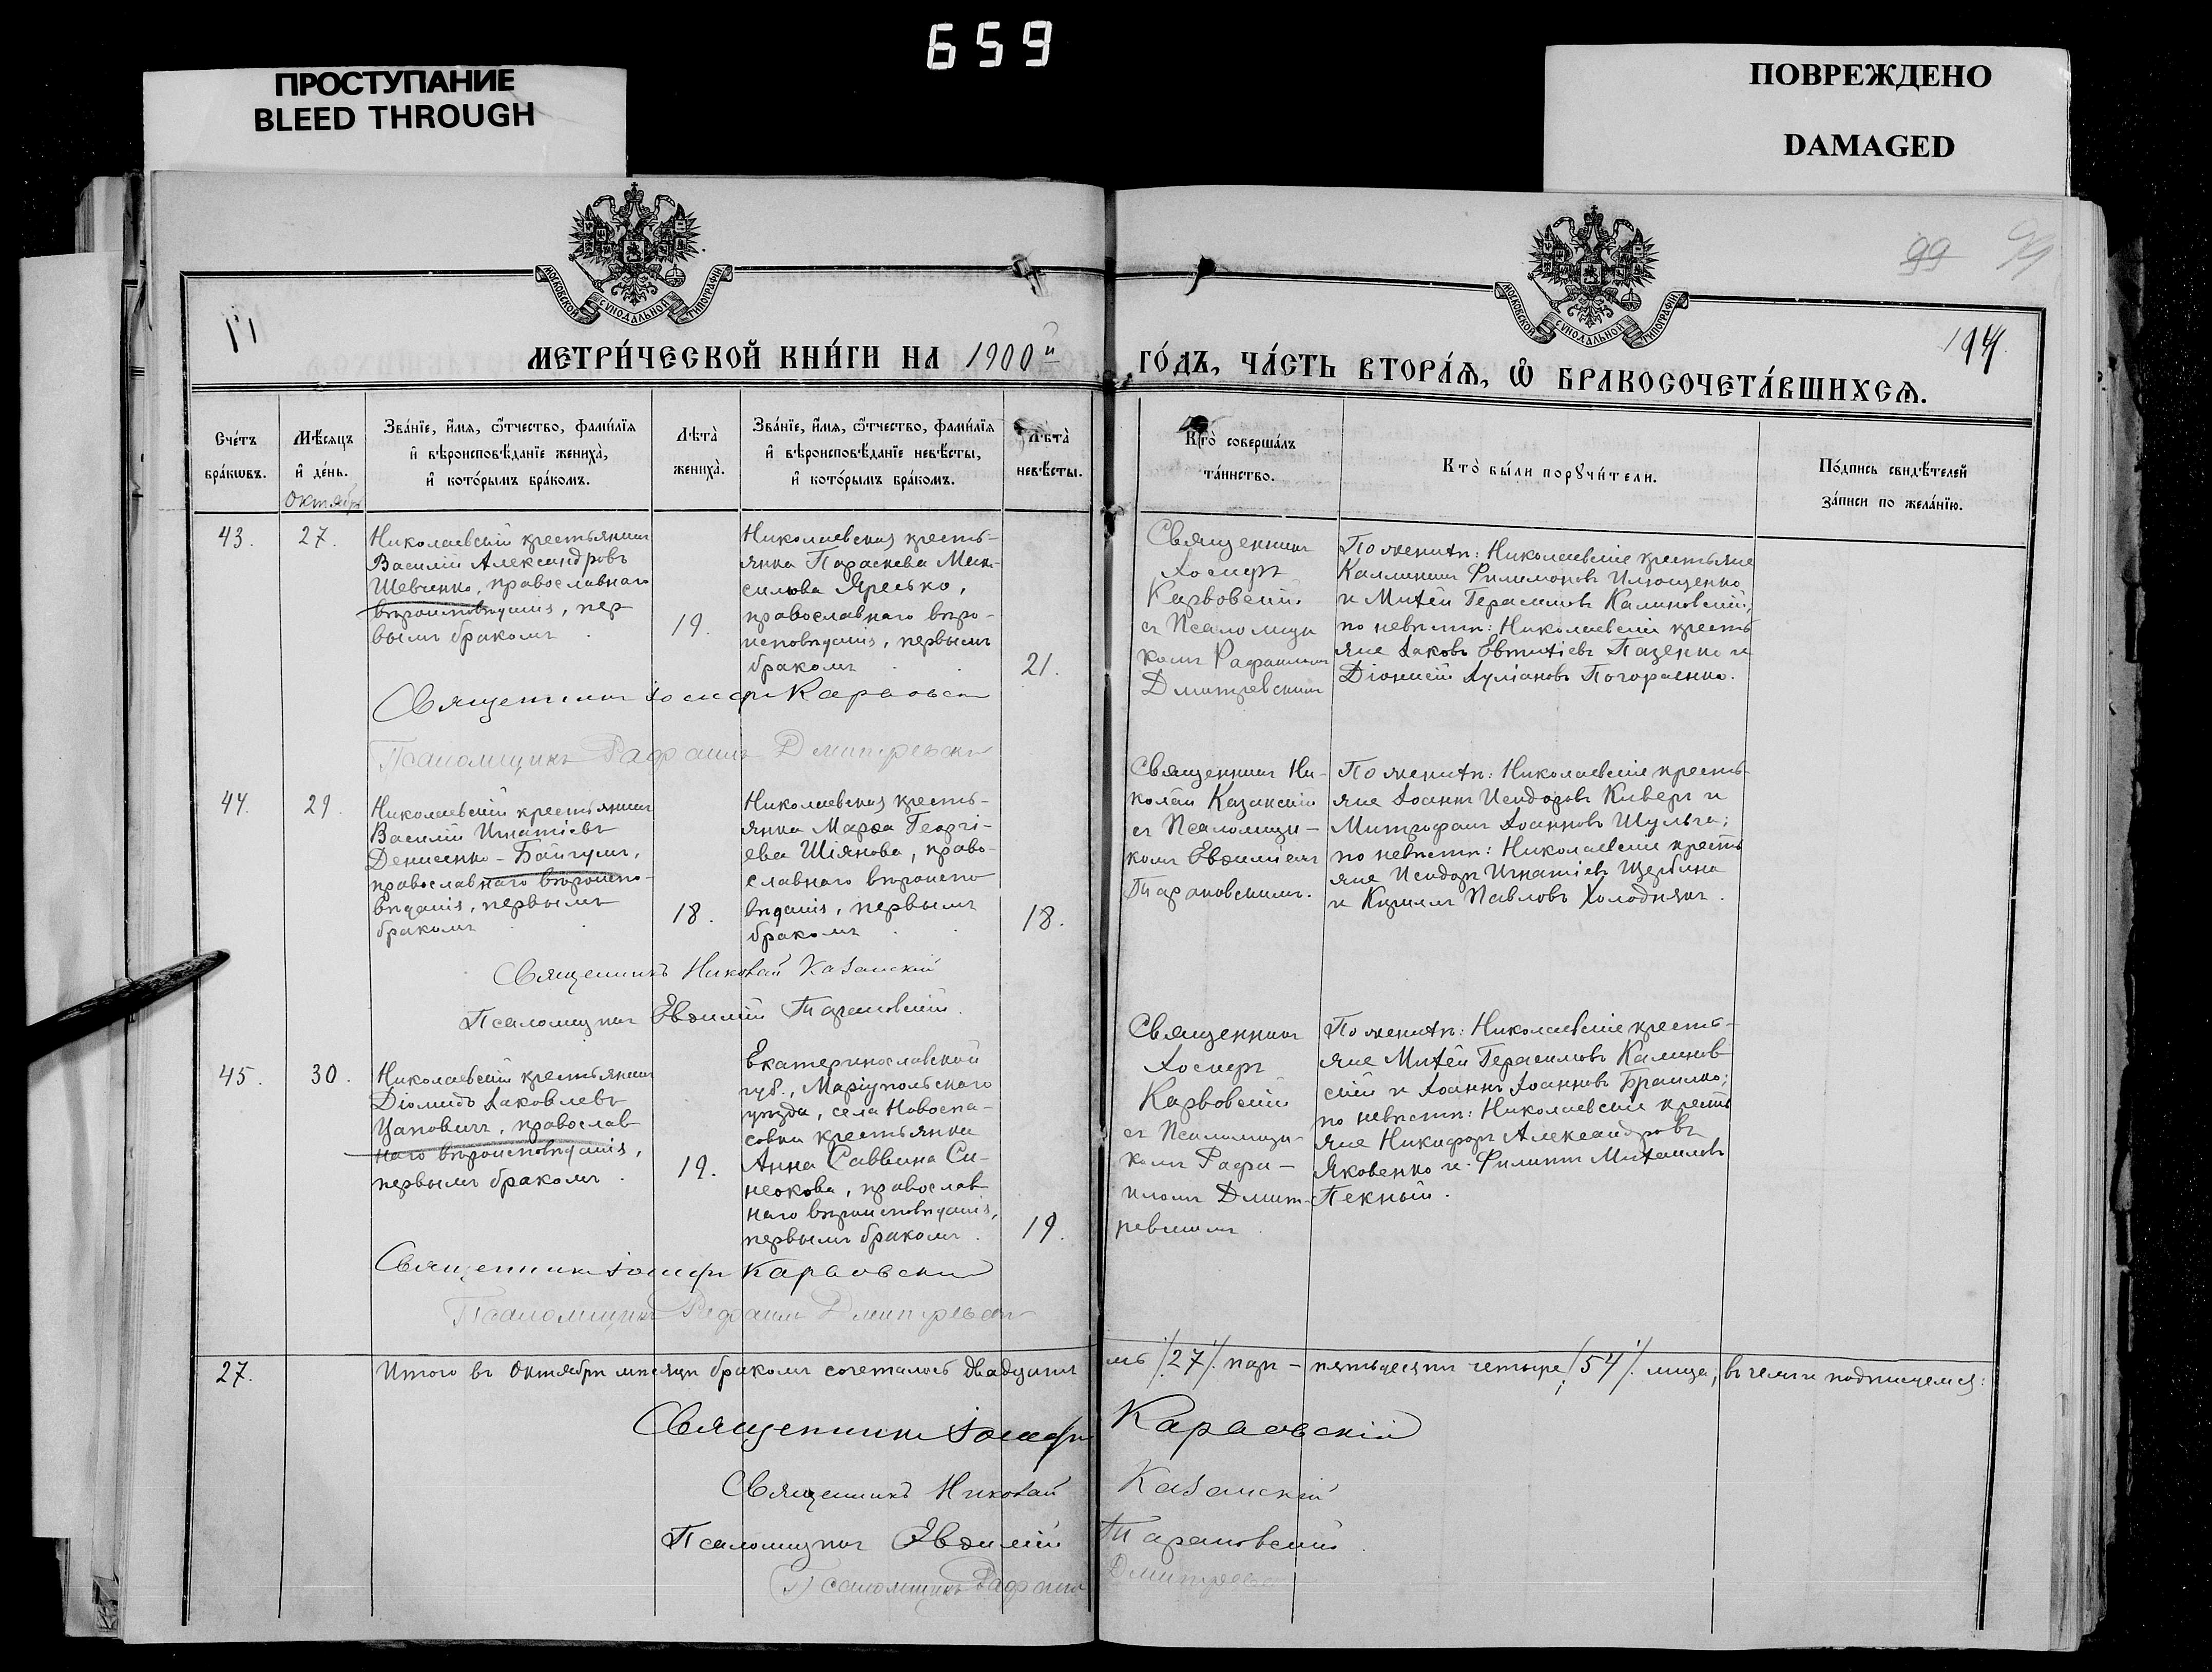 659
ПРОСТУПАНИЕ
BLEED THROUGH
ПОВРЕЖДЕНО
DAMAGED
МОСКОВСКОЙ СѴНОДАЛЬНОЙ ТИПОГРАФІИ
МОСКОВСКОЙ СѴНОДАЛЬНОЙ ТИПОГРАФІИ
99
194
МЕТРИ́ЧЕСКОЙ КНИ́ГИ НА 1900й
ГО́ДЪ, ЧА́СТЬ ВТОРА́Ѧ, Ѡ҆ БРАКОСОЧЕТА́ВШИХСѦ.
Сче́тъ
бра́кѡвъ.
Мѣ́сяцъ
и҆ де́нь.
Октябрь
Зва́нїе, и҆́мя, ѻ҆́тчество, фами́лїя
и҆ вѣроисповѣ́данїе жениха̀,
и҆ кото́рымъ бра́комъ.
Лѣ́та
жениха̀.
Зва́нїе, и҆́мя, ѻ҆́тчество, фами́лїя
и҆ вѣроисповѣ́данїе невѣ́сты,
и҆ кото́рымъ бра́комъ.
Лѣ́та
невѣ́сты.
Кто̀ соверша́лъ
та́инство.
Кто̀ бы́ли порꙋчи́тели.
По́дпись свидѣ́телей
за́писи по жела́нїю.
43.
27.
Николаевскій крестьянинъ
Василій Александровъ
Шевченко, православнаго
вѣроисповѣданія, пер
вымъ бракомъ.
19.
Николаевская кресть-
янка Параскева Мак-
симова Яресько,
православнаго вѣро-
исповѣданія, первымъ
бракомъ
21.
Священникъ
Іосифъ
Карвовскій
съ Псаломщи
комъ Рафаиломъ
Дмитревскимъ
По женихѣ: Николаевскіе крестьяне
Каллиникъ Филимоновъ Илющенко
и Михей Герасимовъ Калиновскій,
по невѣстѣ: Николаевскіе кресть
яне Іаковъ Евтихіевъ Паценко и
Діонисій Іуліановъ
Священникъ Іосифъ Карвовскій
Псаломщикъ Рафаилъ Дмитревскій
44.
29.
Николаевскій крестьянинъ
Василій Игнатіевъ
Денисенко-
православнаго вѣроиспо-
вѣданія, первымъ
бракомъ
18.
Николаевская кресть-
янка Марѳа Георгі-
ева Шіянова, право-
славнаго вѣроиспо
вѣданія, первымъ
бракомъ
18.
Священникъ Ни-
колай Казанскій
съ Псаломщи-
комъ Евѳиміемъ
Тарановскимъ.
По женихѣ: Николаевскіе кресть-
яне Іоаннъ Исидоровъ Киверъ и
Митрофанъ Іоанновъ Шульга;
по невѣстѣ: Николаевскіе кресть
яне Исидоръ Игнатіевъ Щербина
и Кириллъ Павловъ Холоднякъ.
Священникъ Николай Казанскій
Псаломщикъ Евѳимій Тарановскій.
45.
30.
Николаевскій крестьянинъ
Діомидъ Іаковлевъ
Цаповичъ, православ
наго вѣроисповѣданія,
первымъ бракомъ.
19.
Екатеринославской
губ., Маріупольскаго
уѣзда, села Новоспа-
совки крестьянка
Анна Саввина Си-
неокова, православ
наго вѣроисповѣданія,
первымъ бракомъ.
19.
Священникъ
Іосифъ
Карвовскій
съ Псаломщи-
комъ Рафа-
иломъ Дмит-
ревскимъ
По женихѣ: Николаевскіе кресть-
яне Михей Герасимовъ Калинов
скій и Іоаннъ Іоанновъ Браилко;
по невѣстѣ: Николаевскіе кресть
яне Никифоръ Александровъ
Яковенко и Филиппъ Михаиловъ
Пекный.
Священникъ Іосифъ Карвовскій
Псаломщикъ Рафаилъ Дмитревскій
27.
Итого въ Октябрѣ мѣсяцѣ бракомъ сочеталось двадцать
мь /27/. паръ - пятьдесятъ четыре /54/. лица; въ чемъ и подписуемся:
Священникъ Іосифъ Карвовскій
Священникъ Николай Казанскій
Псаломщикъ Евѳимій Тарановскій.
Псаломщикъ Рафаилъ Дмитревскій